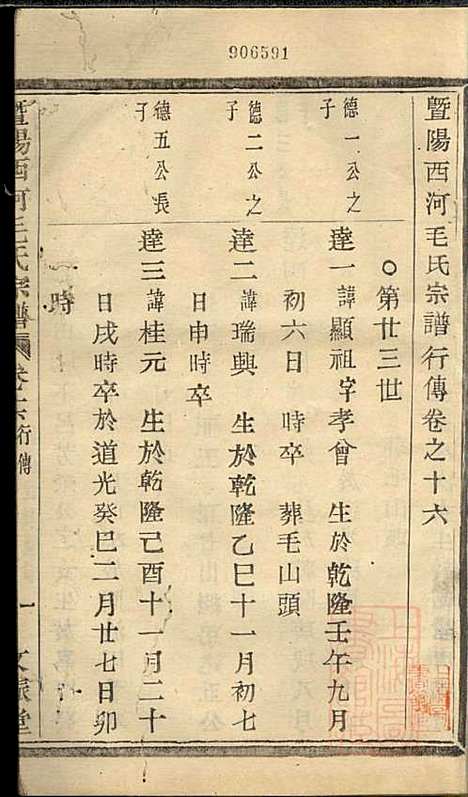 906591
暨陽西河毛氏宗譜行傳卷之十六
○第廿三世
德一公之子
達一諱顯祖字孝曾 生於乾隆壬午九月
初六日 時卒 葬毛山頭
德二公之子
達二諱瑞興 生於乾隆乙巳十一月初七
日申時卒
德五公長子
達三諱桂元 生於乾隆己酉十一月二十
日戌時卒於道光癸巳二月廿七日卯
時
暨陽西河毛氏宗譜 卷十六行傳 一 文振堂